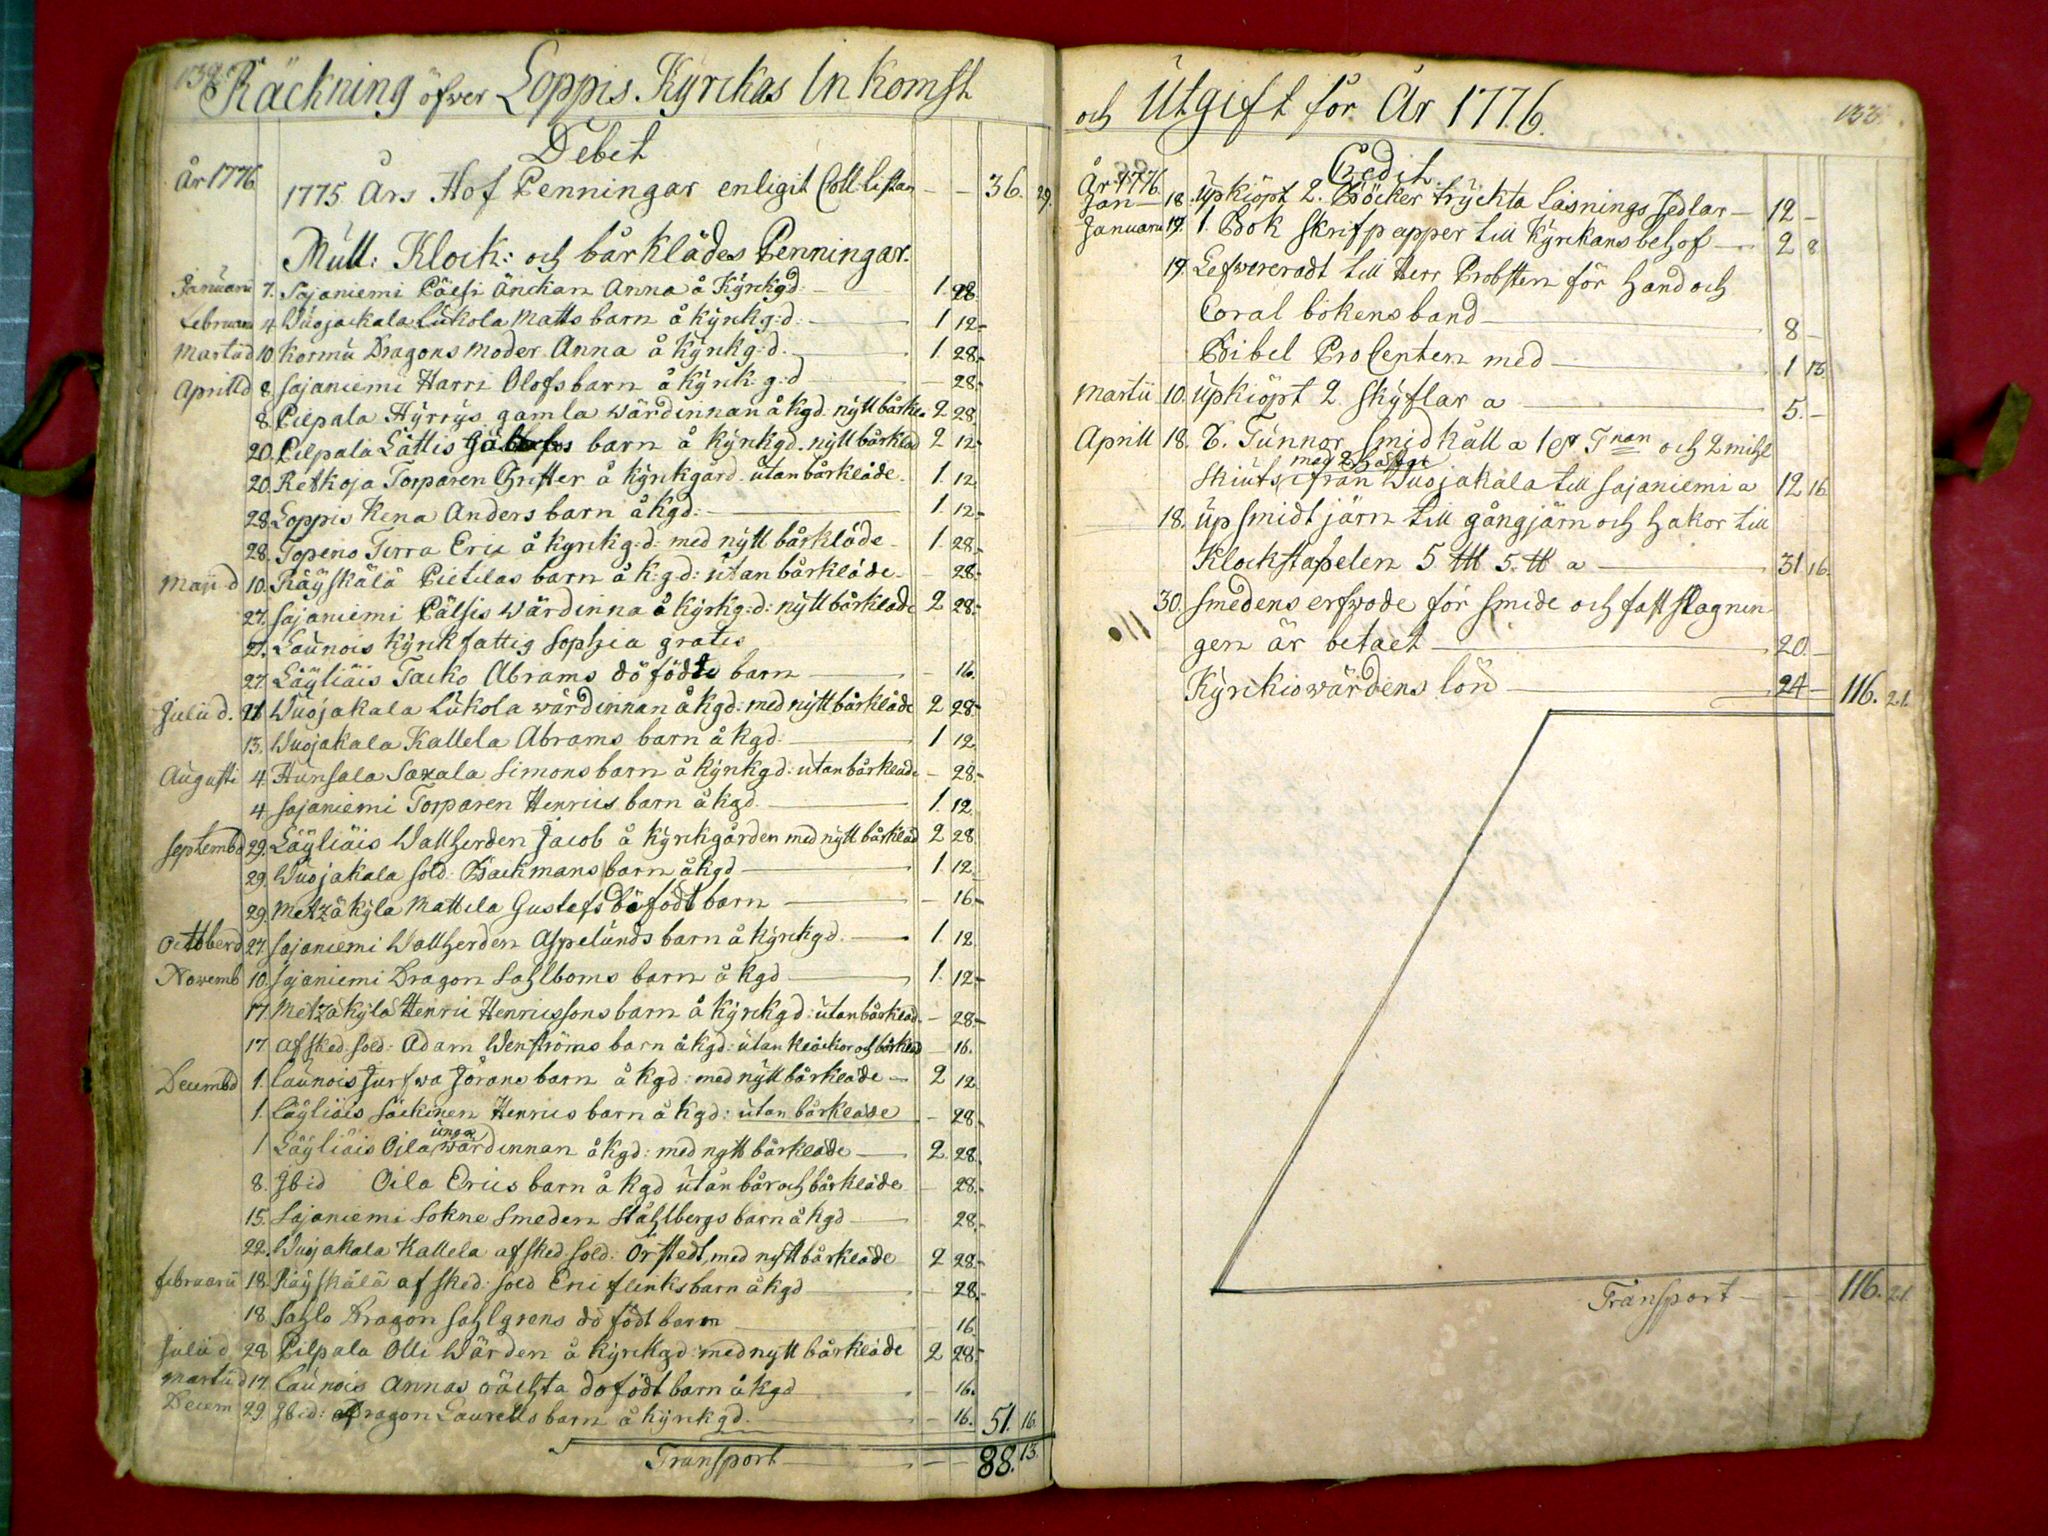 132.
Räckning öfwer Loppis Kÿrckas Inkomst
Debet
År 1776 1775 Års Hof Penningar enligit Coll: listan - - 36. 29.
Mull: Klock: och bårklädes Penningar.
Januarii 7. Sajaniemi Pälsi Änckan Anna å Kÿrckgd: 1. 28.
Februarii 4. Wuojackala Lukola Matts barn å kÿrckg:d: 1 12.
Martii d 10. Kormu Dragons Moder Anna å Kÿrckg:d. 1. 28.
Aprill d 8. Sajaniemi Harri Olofs barn å kÿrck:g:d - 28.
8. Pilpala Hÿrrÿs gamla wärdinnan å kgd: nÿtt bårklä 2 28
20. Pilpala Lättis barn å kÿrckgd. nÿtt bårkläd 2 12.
20. Retkoja Torparen Christer å kÿrckgård. utan bårkläde. 1. 12.
28. Loppis Kena Anders barn å kgd: 1. 12.
28. Topeno Tirra Eric å kyrckg:d: med nÿtt bårkläde 1. 28.
Maji d 10. Räÿskälä Pietilas barn å k:g:d: utan bårkläde. - 28.
27. Sajaniemi Pälsis wärdinna å kÿrkg:d: nÿtt bårkläde 2 28.
27. Launois Kÿrckfattig Sophia gratis
27. Läÿliäis Tacko Abrams dödfödde barn - 16.
Julii d. 21 Wuojakala Lukola wärdinnan å kgd: med nÿtt bårkläde 2 28.
13. Wuojakala Kallela Abrams barn å kgd: 1 12.
Augusti 4. Hunsala Saxala Simons barn å kÿrckgd: utan bårkläde - 28.
4 Sajaniemi Torparen Henrics barn å kgd. 1. 12.
Septemb d 29. Läÿliäis Wallherden Jacob å Kÿrckgården med nÿtt bårkläd 2 28
29. Wuojakala Sold: Backmans barn å kgd 1. 12.
29. Metzäkÿla Mattila Gustafs dödfödt barn - 16.
Octtober d 27. Sajaniemi Wallherden Aspelunds barn å kÿrckgd. 1. 12.
Novemb 10. Sajaniemi Dragon Sahlboms barn å kgd 1. 12.
17. Metzäkÿlä Henric Henricssons barn å kÿrckgd: utan bårkläd. - 28.
17. afsked: Sold: Adam Wenströms barn å kgd: utan klåckor och bårkläd - 16.
Decemb d 1. Launois Jurfwa Jörans barn å kgd: med nÿtt bårkläde 2 12
1. Läÿliäis Säckinen Henrics barn å kgd: utan bårkläde - 28.
unga
1 Läÿliäis Oila wärdinnan å kgd: med nytt bårkläde 2. 28.
8. Jbid Oila Erics barn å kgd utan bår och bårkläde - 28.
15. Sajaniemi Sokne Smeden Ståhlbergs barn å kgd - 28.
22. Wuojakala Kallela afsked: Sold: Örstedt, med nÿtt bårkläde 2 28.
Februarii 18. Räÿskälä afsked: Sold Eric Flinks barn å kgd - 28.
18. Sahlo Dragon Sahlgrens dödfödt barn - 16.
Julii d. 28 Pilpala Olli Wärden å kÿrckgd: med nytt bårkläde 2 28.
Martii d 17. Launois Annas oächta dofödt barn å kgd - 16.
Decem 29. Jbid: Dragon Laurells barn å kÿrckgd. - 16. 51. 16.
Transport - - 88. 13.
och Utgift för År 1776. 133.
Credit.
År 1776.
Jan 18. upkiöpt 2. Böcker trÿckta Läsnings Sedlar 12 -
Januarii 19. 1. Bok Skrifpapper till Kÿrckans behof 2 8
19. Lefwereradt till Herr Probsten för Hand och
Coral bokens band 8 -
Bibel ProCenten med 1 13.
Martii 10. upkiöpt 2 Skÿflar a 5. -
Aprill 18. 6. Tunnor Smidkåll a Tnan och 2 mihl
med 2 hästar
Skiuts ifrån Wuojakala till Sajaniemi a 12 16
18. up smidt järn till gångjärn och hakor till
Klockstapelen 5 5. a 31 16.
30. Smedens erfwode för Smide och fastslagnin
gen är betalt 20. -
Kÿrckiowärdens lön 24 - 116. 21.
Transport - - 116. 21.